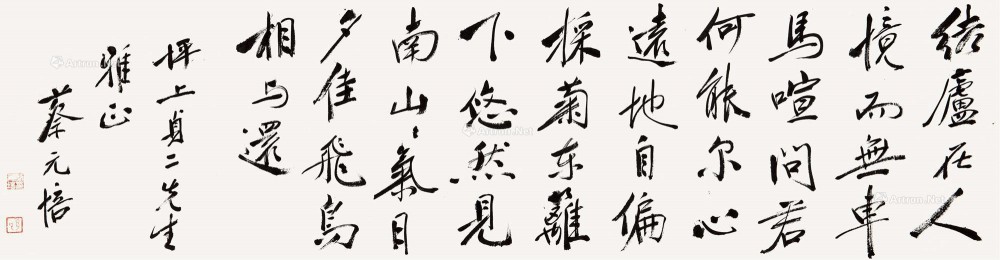 結廬在人
境而無車
馬喧問君
何能尔心
遠地自偏
採菊东籬
下悠然見
南山々氣日
夕佳飛鳥
相与還
坪上貞二先生
雅正
蔡元培